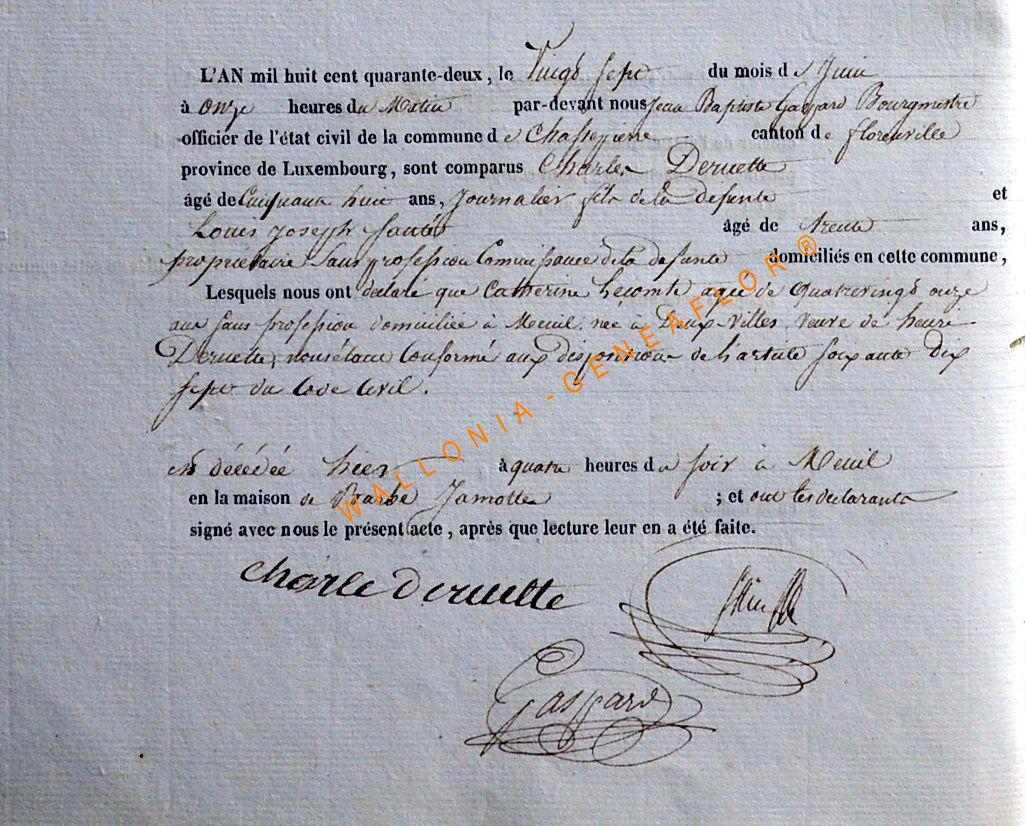 L'AN mil huit cent quarante-deux, le vingt sept du mois de Juin
à onze heures du Matin par-devant nous Jean Baptiste Gaspard Bourgmestre
officier de l'état civil de la commune de Chassepierre canton de florenville
province de Luxembourg, sont comparus Charles Deruette
âgé de Cinquante huit ans, Journalier fils de la defunte et
Louis Joseph âgé de trente ans,
propriétaire sans profession Connaissance de la defunte domiciliés en cette commune,
Lesquels nous ont declaré que Catherine Lecomte agée de quatrevingt onze
ans sans profession domiciliée à Menil, née à Deux-Villes, veuve de henri
Deruette, nous étant Conformé aux dispositions de l'article soixante dix
sept du Code Civil.
est décédée hier à quatre heures du soir à Menil
en la maison de Barbe Jamotte ; et ont les declarants
signé avec nous le présent acte, après que lecture leur en a été faite.
charle deruette
Gaspard
WALLONIA - GENEAFLOR ®